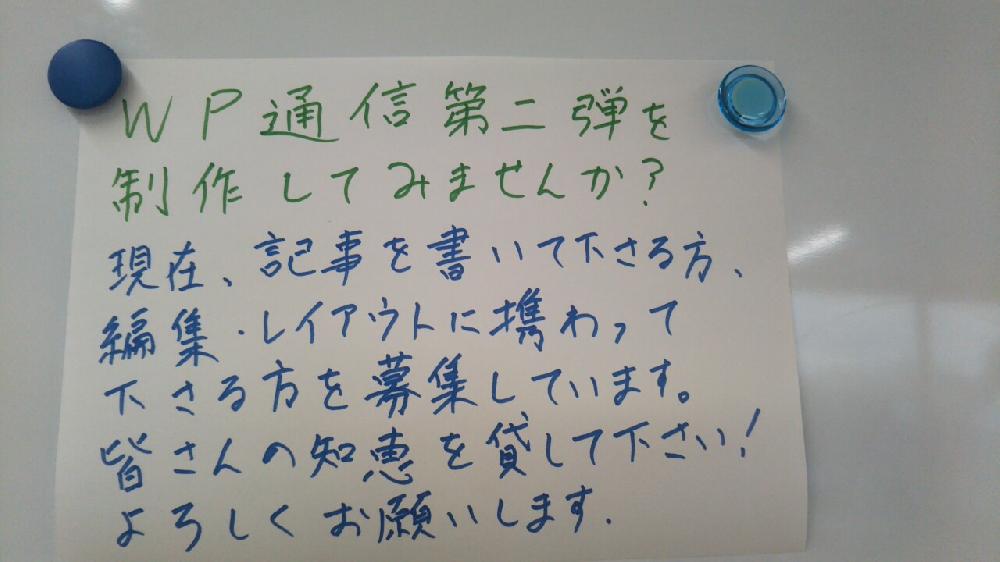 WP通信第二弾を
制作してみませんか?
現在、記事を書いて下さる方、
編集・レイアウトに携わって
下さる方を募集しています。
皆さんの知恵を貸して下さい!
よろしくお願いします.